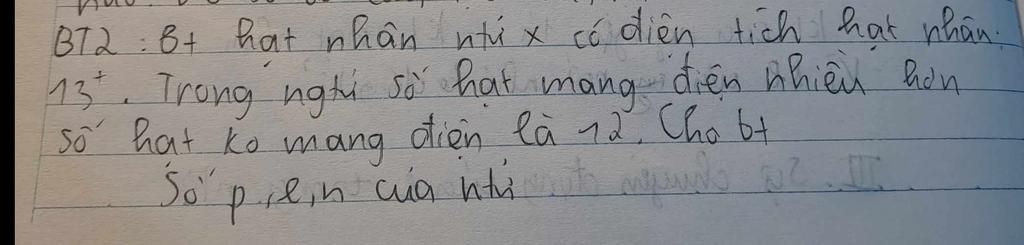 BT2: Bt hạt nhân ntử x có điện tích hạt nhân.
13+. Trong ngtử số hạt mang điện nhiều hơn
số hạt ko mang điện là 12. Cho bt
Số p, e, n của ntử